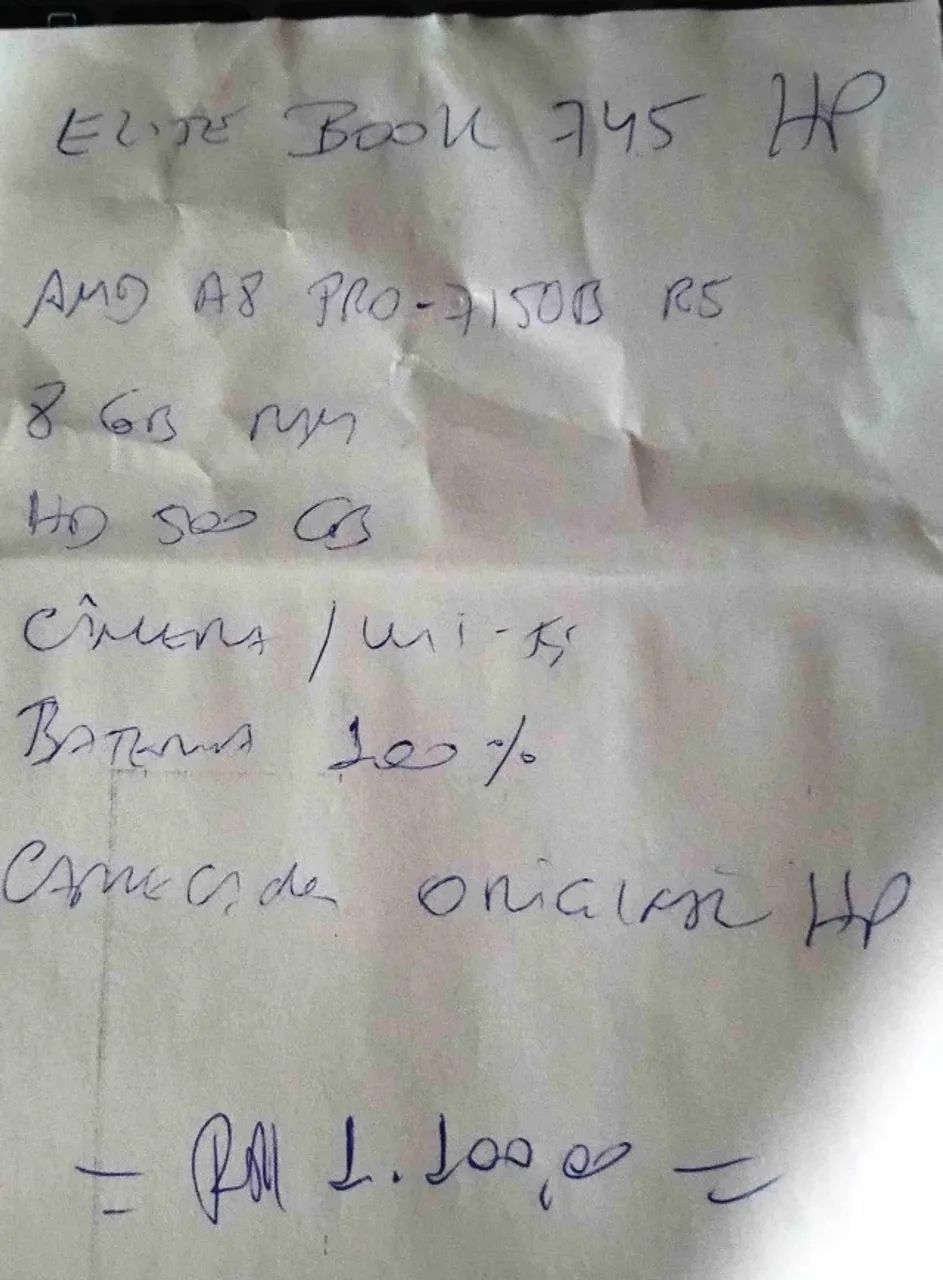 ELITE BOOK 745 HP
AMD A8 PRO-7150B R5
8 GB RAM
HD 500 GB
CÂMERA / WI-FI
BATERIA 100%
CARREGADOR ORIGINAL HP
= R$ 1.100,00 =